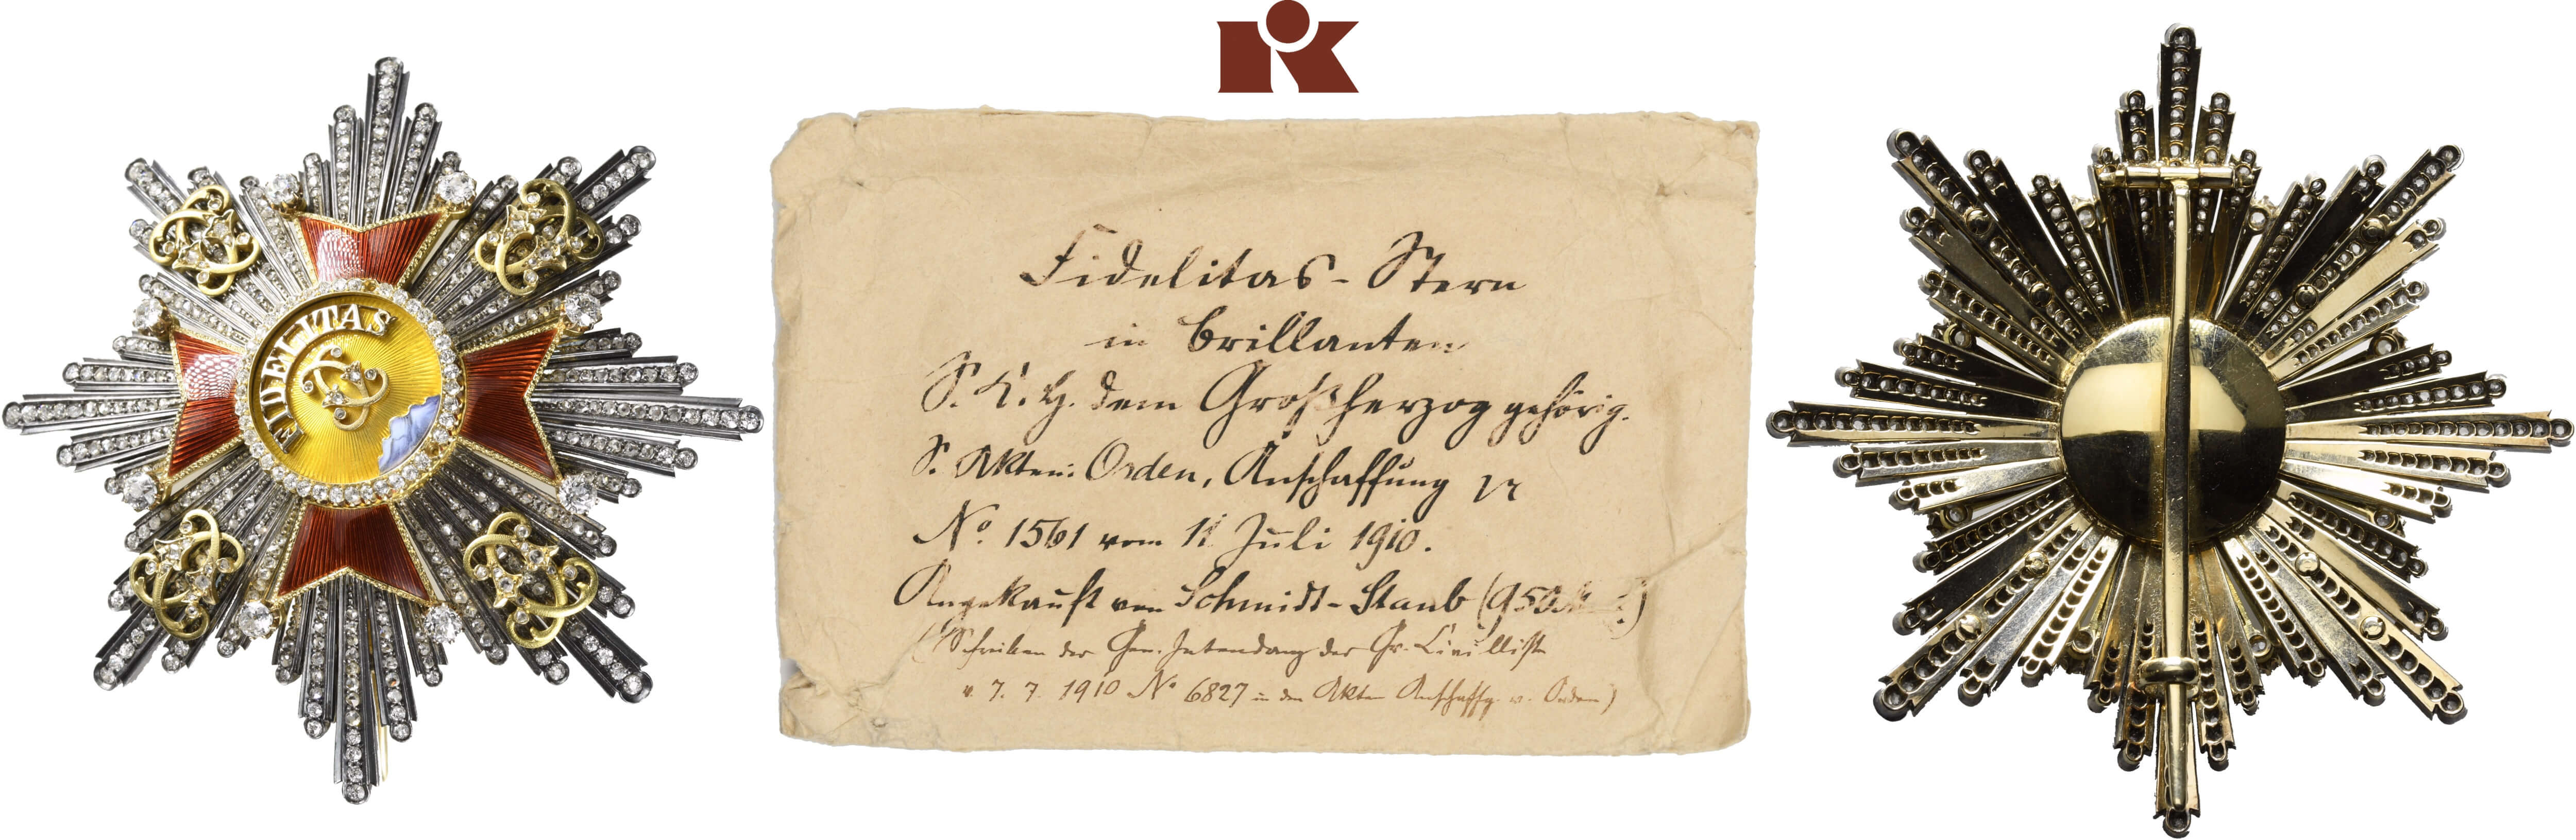 FIDELITAS
Fidelitas-Stern
in Brillanten
S. K. H. dem Großherzog gehörig.
S. Akten: Orden, Anschaffung
No. 1561 vom 11 Juli 1910.
Angekauft von Schmidt-Staub (950
(Schreiben der Gen. Intendanz der Gr. Civilliste
v. 7. 7. 1910 No 6827 in den Akten Anschaffg. v. Orden)